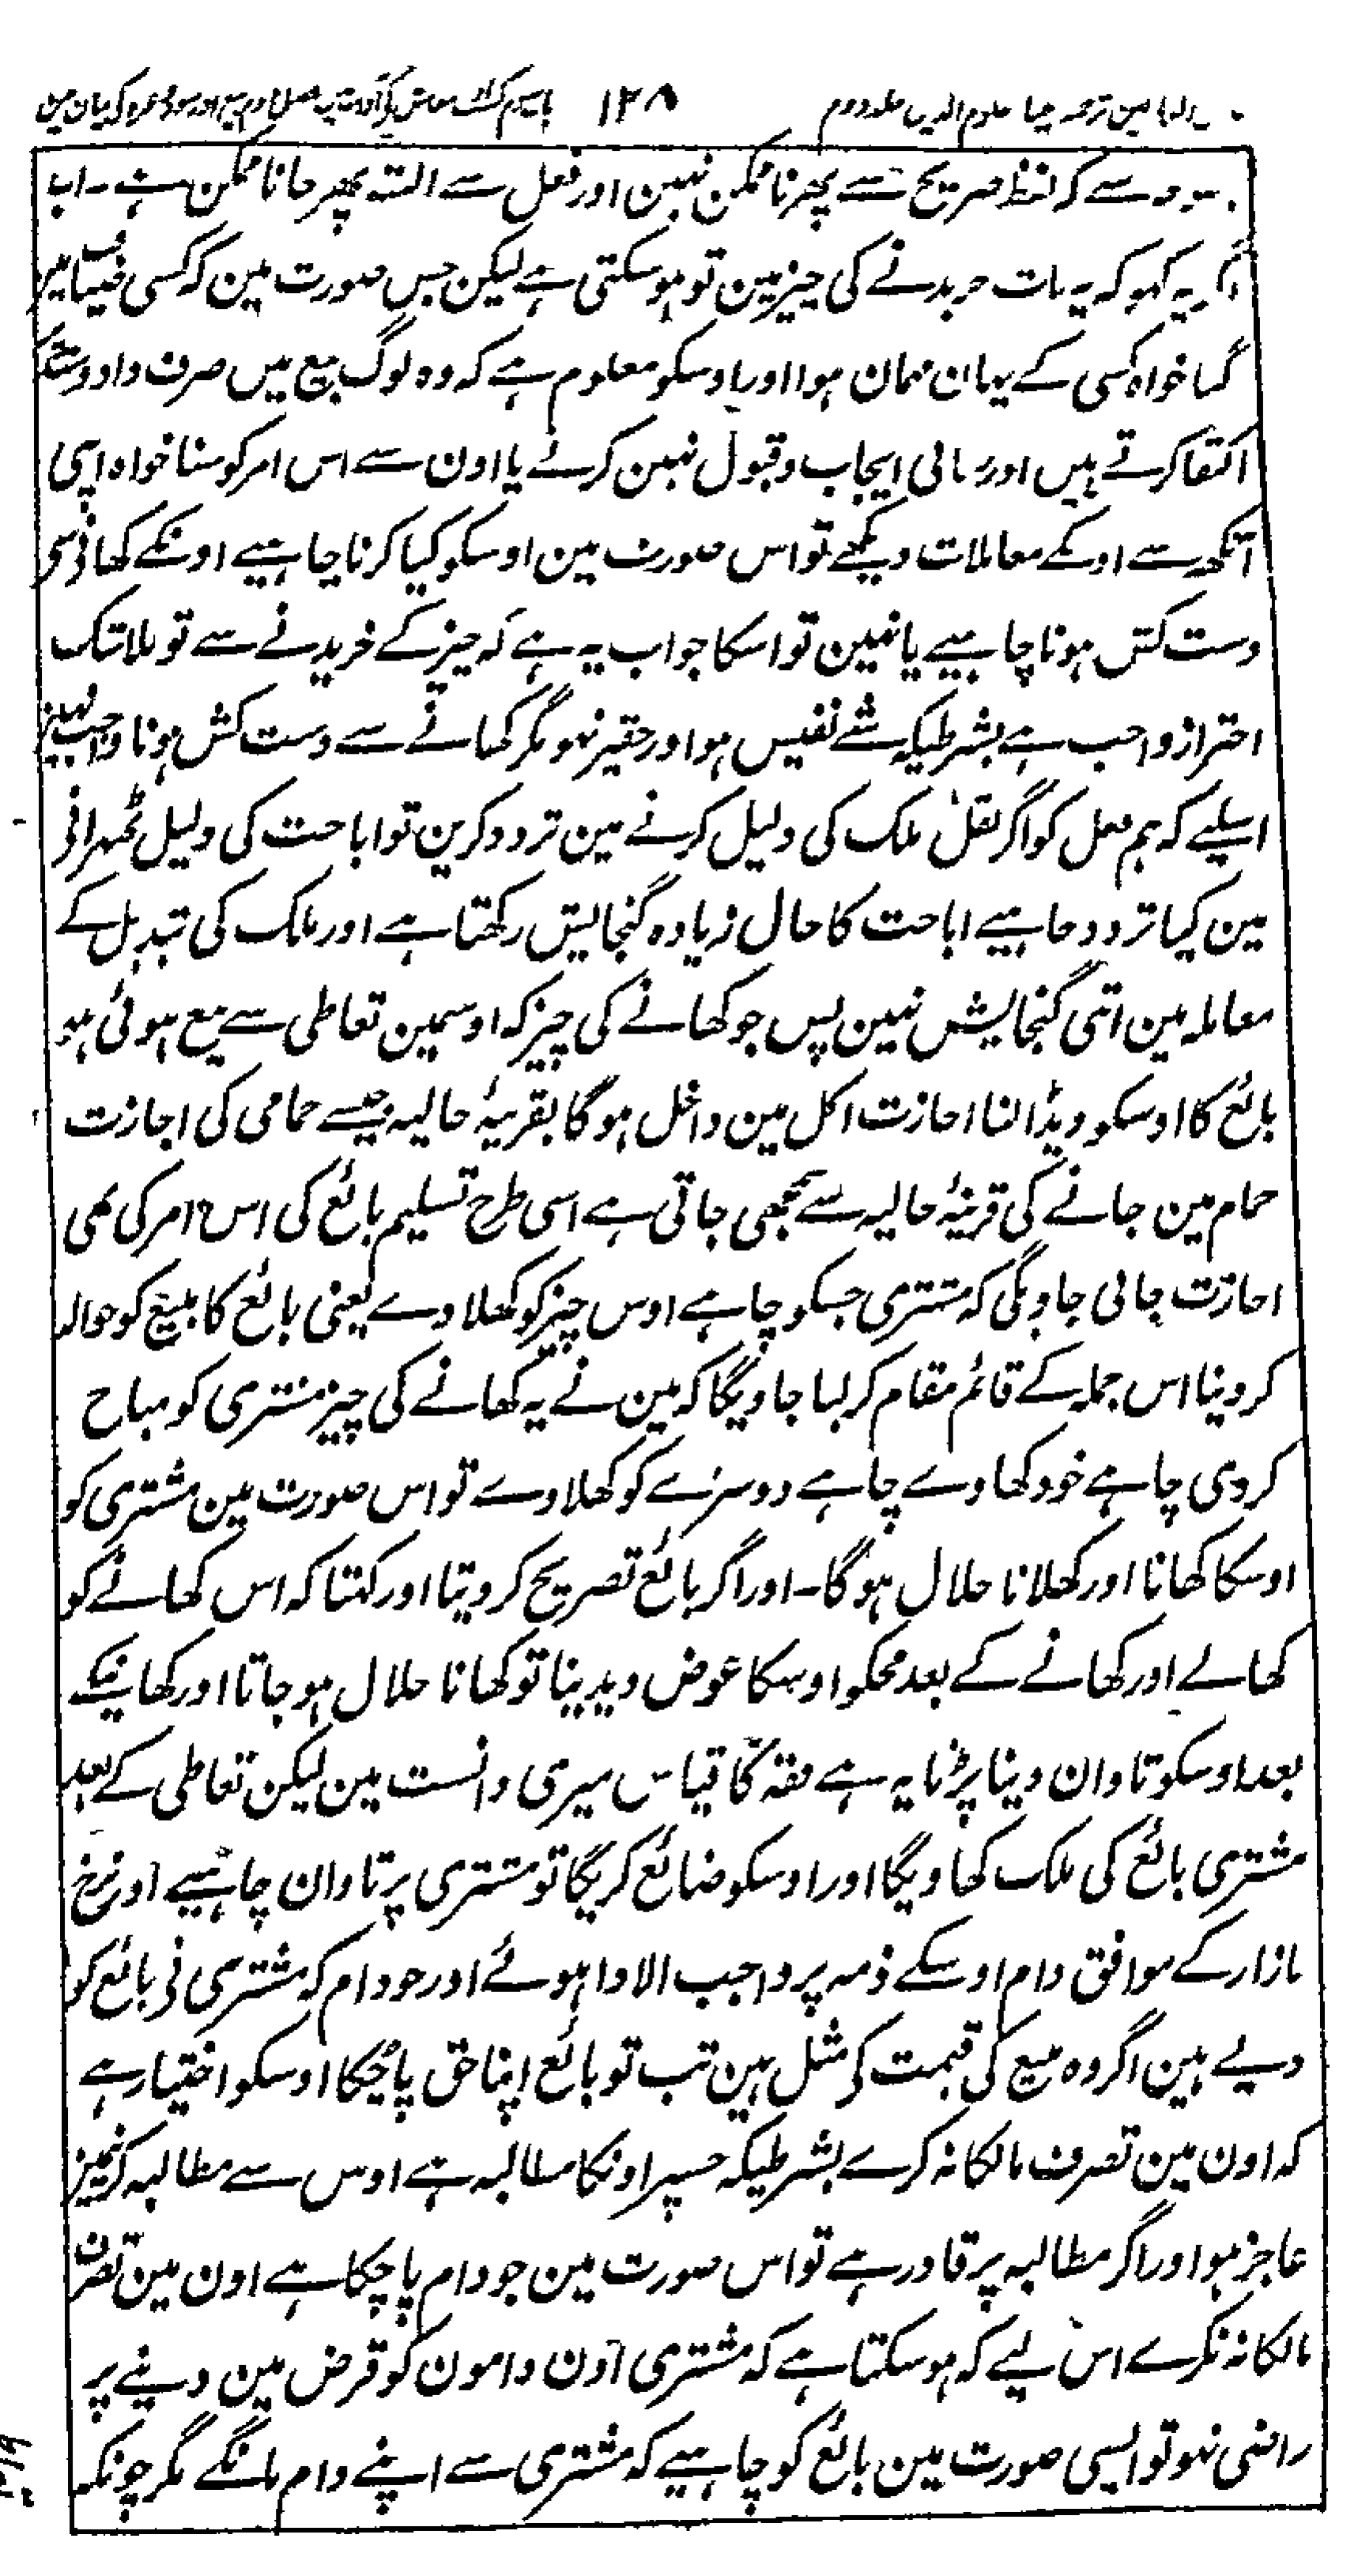 مذاق العارفین ترجمہ احیاء علوم الدین جلد دوم ۱۲۸ باب سوم کسب معاش کی
سے کہ لفظ صریح سے پھرنا ممکن نہین اور فعل سے البتہ پھر جانا ممکن ہے۔ اب
اگر یہ کہو کہ یہ بات خریدنے کی چیز مین تو ہو سکتی ہے لیکن جس صورت مین کہ کسی ضیافت مین
گیا خواہ کسی کے یہان مہمان ہوا اور اوسکو معلوم ہے کہ وہ لوگ بیع میں صرف داد وستد پر
اکتفا کرتے ہیں اور زبانی ایجاب و قبول نہین کرتے یا اون سے اس امر کو سنا خواہ اپنی
آنکھ سے اونکے معاملات دیکھے تو اس صورت مین اوسکو کیا کرنا چاہیے اونکے کھانے سے
دست کش ہونا چاہیے یا نہین تو اسکا جواب یہ ہے کہ چیز کے خریدنے سے تو بلا شک
احتراز واجب ہے بشرطیکہ شے نفیس ہو اور حقیر نہو مگر کھانے سے دست کش ہونا واجب نہین
اسلیے کہ ہم فعل کو اگر نقل ملک کی دلیل کرنے مین تردد کرین تو اباحت کی دلیل ٹھہرانے
مین کیا تردد چاہیے اباحت کا حال زیادہ گنجایش رکھتا ہے اور ملک کی تبدیل کے
معاملہ مین اتنی گنجایش نہین پس جو کھانے کی چیز کہ اوسمین تعاطی سے بیع ہوئی ہو
بائع کا اوسکو دیڈالنا اجازت اکل مین داخل ہوگا بقرینۂ حالیہ جیسے حمامی کی اجازت
حمام مین جانے کی قرینۂ حالیہ سے سمجھی جاتی ہے اسی طرح تسلیم بائع کی اس امر کی بھی
اجازت جانی جاویگی کہ مشتری جسکو چاہے اوس چیز کو کھلا دے یعنی بائع کا مبیع کو حوالہ
کر دینا اس جملہ کے قائم مقام کر لیا جاویگا کہ مین نے یہ کھانے کی چیز مشتری کو مباح
کر دی چاہے خود کھاوے چاہے دوسرے کو کھلاوے تو اس صورت مین مشتری کو
اوسکا کھانا اور کھلانا حلال ہوگا۔ اور اگر بائع تصریح کر دیتا اور کہتا کہ اس کھانے کو
کھالے اور کھانے کے بعد مجکو اوسکا عوض دیدینا تو کھانا حلال ہو جاتا اور کھانیکے
بعد اوسکو تاوان دینا پڑتا یہ ہے فقہ کا قیاس میری دانست مین لیکن تعاطی کے بعد
مشتری بائع کی ملک کھاویگا اور اوسکو ضائع کریگا تو مشتری پر تاوان چاہیے اور نرخ
بازار کے موافق دام اوسکے ذمہ پر واجب الادا ہوئے اور جو دام کہ مشتری نے بائع کو
دیے ہین اگر وہ مبیع کی قیمت کی مثل ہین تب تو بائع اپنا حق پا چکا اوسکو اختیار ہے
کہ اون مین تصرف مالکانہ کرے بشرطیکہ جسپر اونکا مطالبہ ہے اوس سے مطالبہ کرنے مین
عاجز ہو اور اگر مطالبہ پر قادر ہے تو اس صورت مین جو دام پا چکا ہے اون مین تصرف
مالکانہ نکرے اس لیے کہ ہو سکتا ہے کہ مشتری اون دامون کو قرض مین دینے پر
راضی نہو تو ایسی صورت مین بائع کو چاہیے کہ مشتری سے اپنے دام مانگے مگر چونکہ